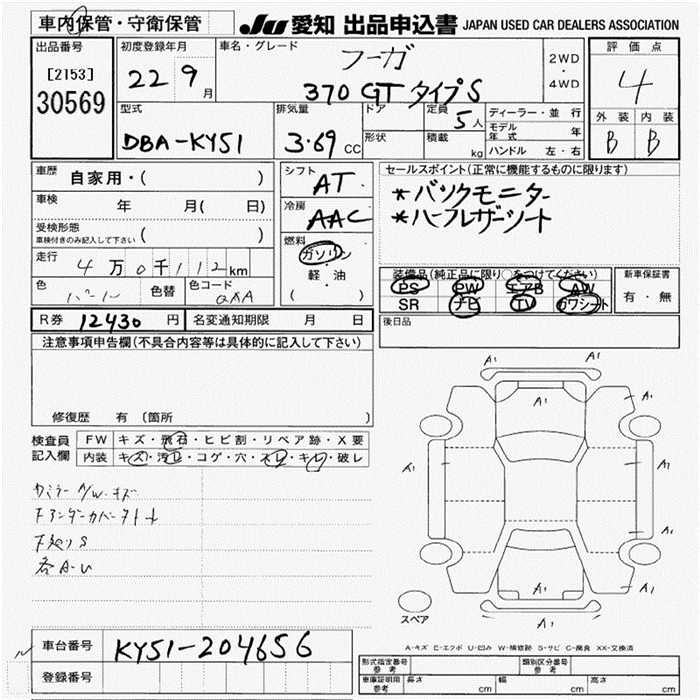 車内保管・守衛保管
JU 愛知 出品申込書 JAPAN USED CAR DEALERS ASSOCIATION
出品番号
[2153]
30569
初度登録年月
22 9月
車名・グレード
フーガ
370 GT タイプS
2WD
・
4WD
評価点
4
外装 内装
B B
型式
DBA-KY51
排気量
3.69 CC
ドア
形状
定員 5人
積載 kg
ディーラー・並行
モデル年式 年
ハンドル 左・右
車歴 自家用・( )
車検 年 月( 日)
受検形態
車検付きのみ記入して下さい ( )
走行 4万0千112km
色 パール 色替 色コード QAA
シフト AT
冷房 AAC
燃料
ガソリン
軽・油
( )
セールスポイント(正常に機能するものに限ります)
*バックモニター
*ハーフレザーシート
装備品(純正品に限り○をつけてください)
PS PW エアB AW
SR ナビ TV カワシート
新車保証書
有・無
R券 12430円 名変通知期限 月 日
後日品
注意事項申告欄(不具合内容等は具体的に記入して下さい)
修復歴 有(箇所 )
検査員記入欄
FW キズ・飛石・ヒビ割・リペア跡・X要
内装 キズ・汚レ・コゲ・穴・スレ・キレ・破レ
A/W・キズ
S
各A-U
A1 A1
A1 A1
A1 A1
A1 A1
A1
A1 A1
スペア
A-キズ E-エクボ U-凹み W-補修跡 S-サビ C-腐食 XX-交換済
車台番号 KY51-204656
登録番号
型式指定番号 参考
類別区分番号 参考
車庫証明用 参考 長さ cm 幅 cm 高さ cm